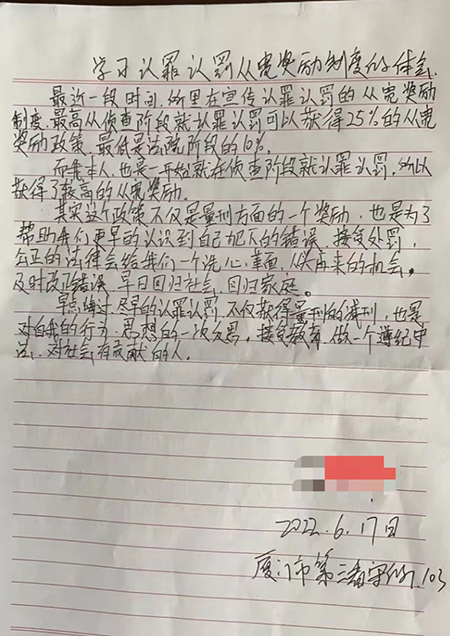 学习认罪认罚从宽奖励制度的体会
最近一段时间,所里在宣传认罪认罚的从宽奖励
制度,最高从侦查阶段就认罪认罚可以获得25%的从宽
奖励政策,最低是法院阶段的10%。
而我本人,也是一开始就在侦查阶段就认罪认罚,所以
获得了较高的从宽奖励。
其实这个政策不仅是量刑方面的一个奖励,也是为了
帮助我们更早的认识到自己犯下的错误,接受处罚,
公正的法律会给我们一个洗心革面,从头再来的机会。
及时改正错误,早日回归社会,回归家庭。
早点悔过,尽早的认罪认罚,不仅获得量刑的减刑,也是
对自我的行为、思想的一次反思,接受教育,做一个遵纪守
法、对社会有贡献的人。
2022.6.17日
厦门市第三看守所103